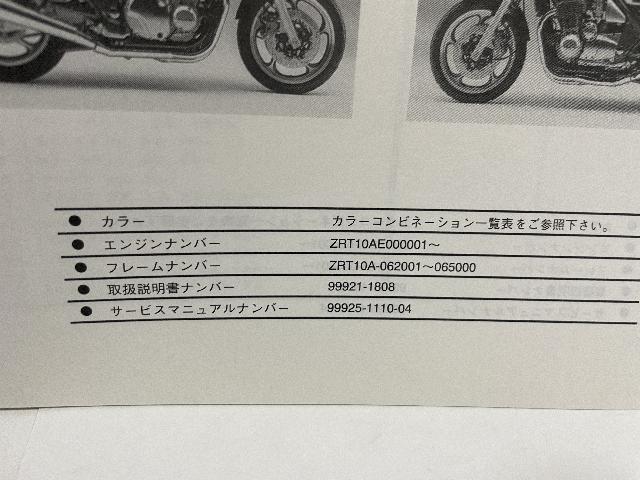 ● カラー カラーコンビネーション一覧表をご参照下さい。
● エンジンナンバー ZRT10AE000001～
● フレームナンバー ZRT10A-062001～065000
● 取扱説明書ナンバー 99921-1808
● サービスマニュアルナンバー 99925-1110-04